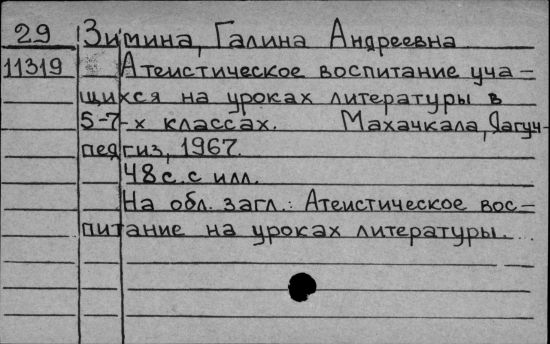 29 Зимина, Галина Андреевна
11319 Атеистическое воспитание уча-
щихся на уроках литературы в
5-7-х классах. Махачкала, Дагуч-
педгиз, 1967.
48 с. с илл.
На обл. загл.: Атеистическое вос-
питание на уроках литературы.